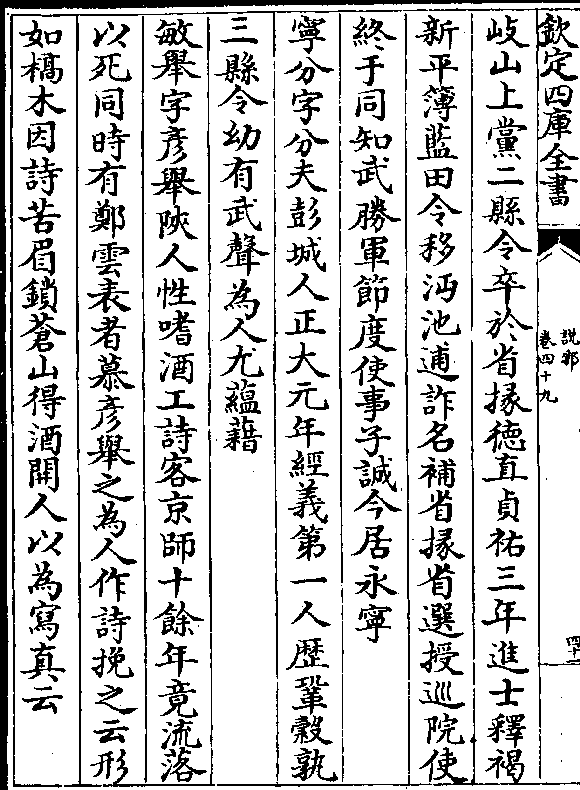 欽定四庫全書
說郛
卷四十九
四十二
岐山上黨二縣令卒於省掾徳直貞祐三年進士釋褐
新平簿藍田令移沔池逋詐名補省掾省選授巡院使
終于同知武勝軍節度使事子誠今居永寧
寧分字分夫彭城人正大元年經義第一人歴鞏穀孰
三縣令幼有武聲為人尤藴藉
敏舉字彦舉陜人性嗜酒工詩客京師十餘年竟流落
以死同時有鄭雲表者慕彦舉之為人作詩挽之云形
如槁木因詩苦眉鎖蒼山得酒開人以為寫真云